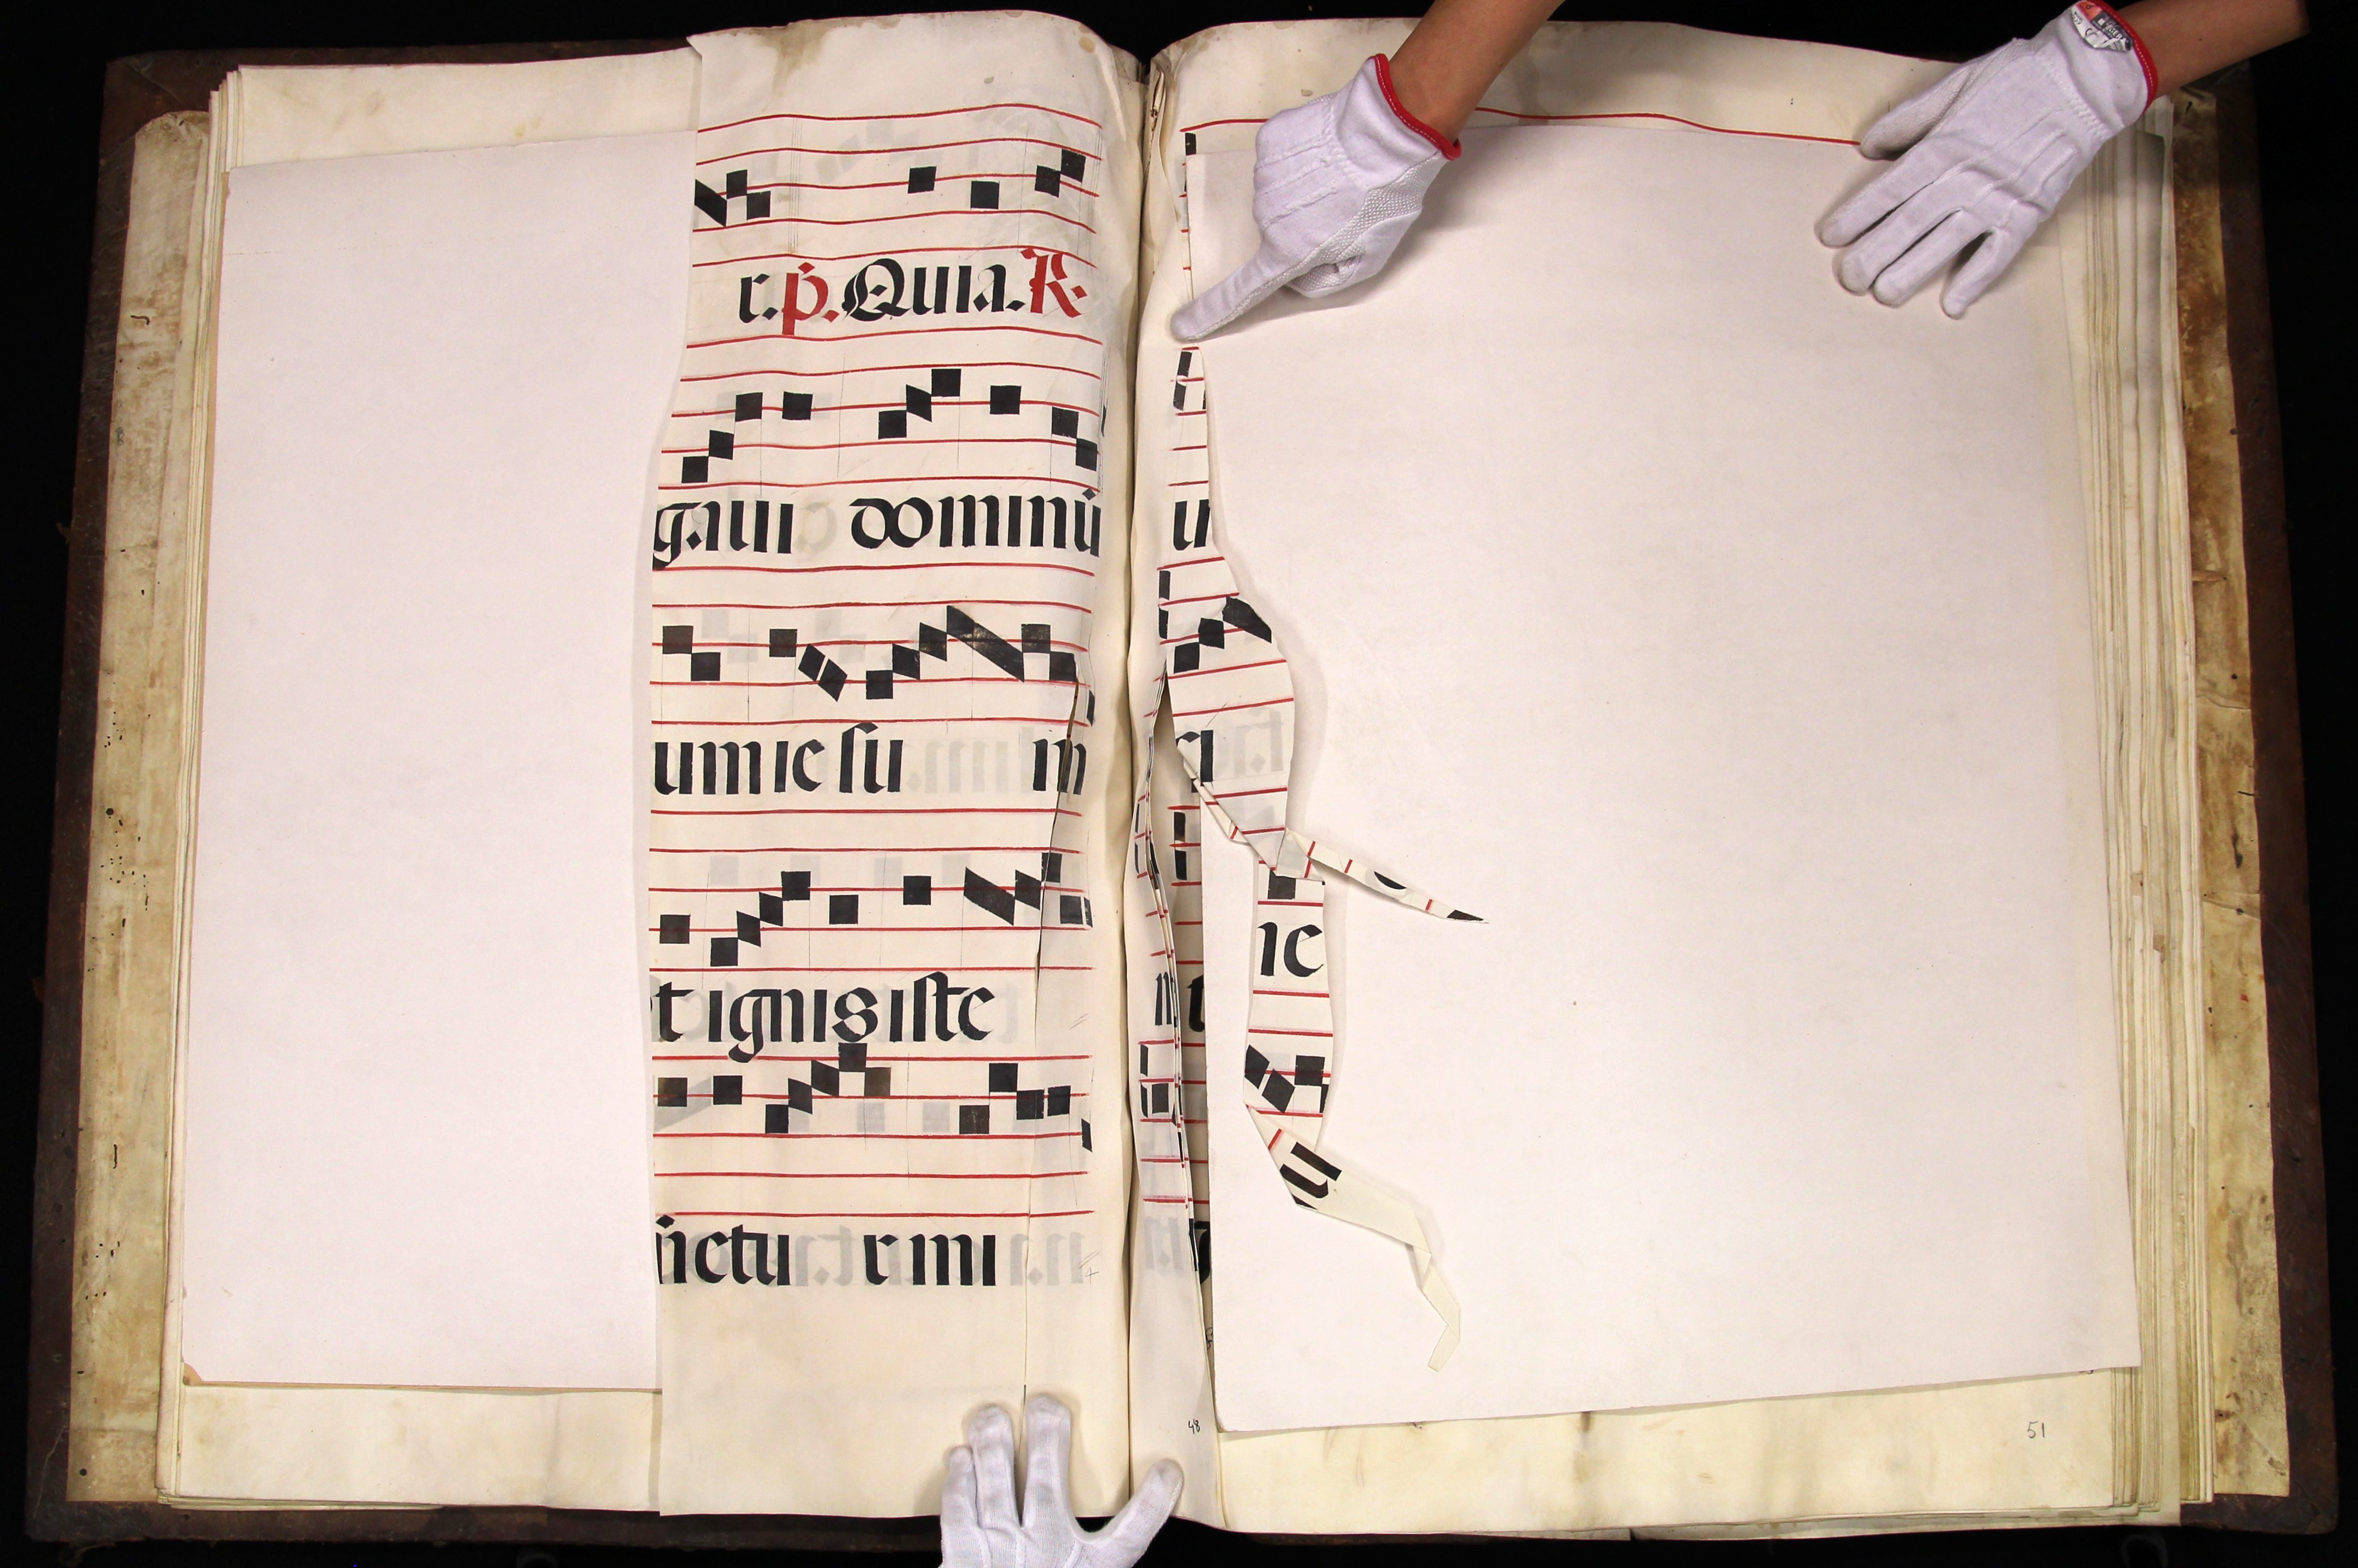 r.p̄.Quia.R.
gaui dominū
um ie su m
t ignis iste
nctu r mi
u
ic
u
48
51